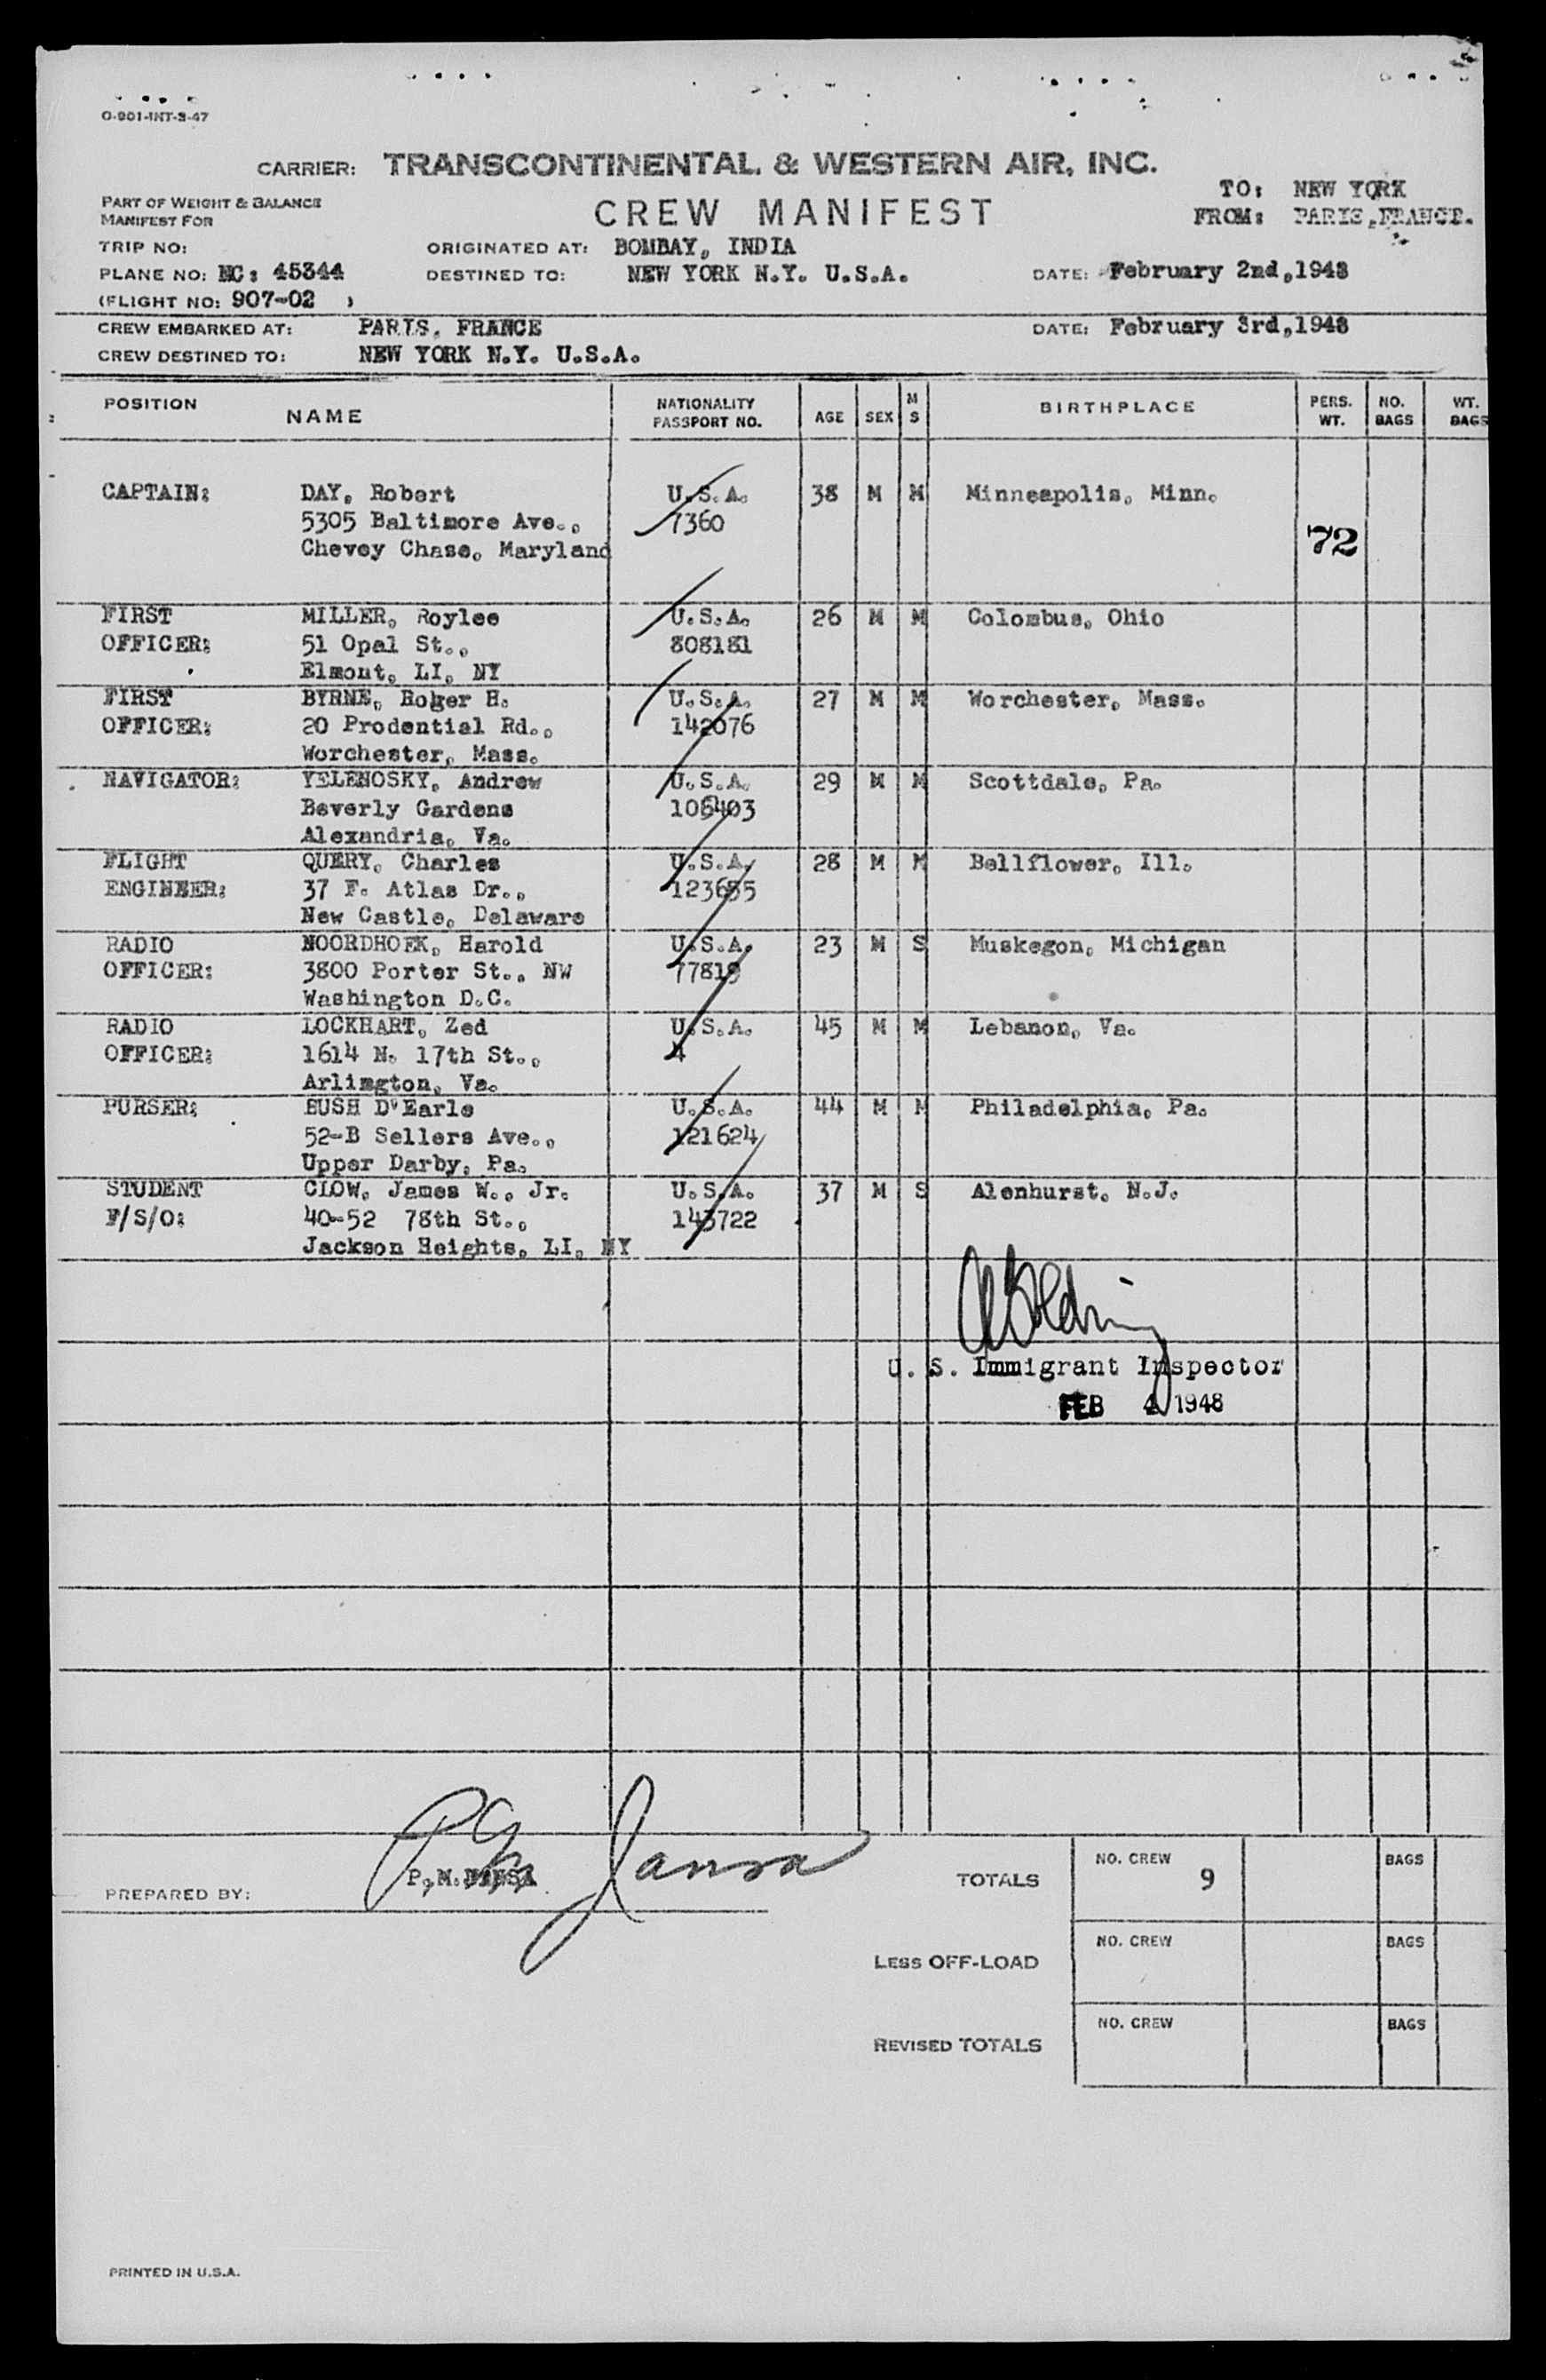 O-901-INT-3-47
CARRIER: TRANSCONTINENTAL & WESTERN AIR, INC.
PART OF WEIGHT & BALANCE
MANIFEST FOR
CREW MANIFEST
TO: NEW YORK
FROM: PARIS, FRANCE.
TRIP NO: ORIGINATED AT: BOMBAY, INDIA
PLANE NO: NC: 45344 DESTINED TO: NEW YORK N.Y. U.S.A. DATE: February 2nd, 1948
(FLIGHT NO: 907-02 )
CREW EMBARKED AT: PARIS, FRANCE DATE: February 3rd, 1948
CREW DESTINED TO: NEW YORK N.Y. U.S.A.
POSITION NAME NATIONALITY PASSPORT NO. AGE SEX M S BIRTHPLACE PERS. WT. NO. BAGS WT. BAGS
CAPTAIN: DAY, Robert U.S.A. 38 M M Minneapolis, Minn.
5305 Baltimore Ave., 7360
Chevey Chase, Maryland 72
FIRST MILLER, Roylee U.S.A. 26 M M Colombus, Ohio
OFFICER: 51 Opal St., 808181
Elmont, LI, NY
FIRST BYRNE, Roger H. U.S.A. 27 M M Worchester, Mass.
OFFICER: 20 Prodential Rd., 142076
Worchester, Mass.
NAVIGATOR: YELENOSKY, Andrew U.S.A. 29 M M Scottdale, Pa.
Beverly Gardens
Alexandria, Va.
FLIGHT QUERY, Charles U.S.A. 28 M M Bellflower, Ill.
ENGINEER: 37 F. Atlas Dr., 123655
New Castle, Delaware
RADIO NOORDHOEK, Harold U.S.A. 23 M S Muskegon, Michigan
OFFICER: 3800 Porter St., NW 77819
Washington D.C.
RADIO LOCKHART, Zed U.S.A. 45 M M Lebanon, Va.
OFFICER: 1614 N. 17th St., 4
Arlington, Va.
PURSER: BUSH D'Earle U.S.A. 44 M M Philadelphia, Pa.
52-B Sellers Ave., 121624
Upper Darby, Pa.
STUDENT CLOW, James W., Jr. U.S.A. 37 M S Alenhurst, N.J.
F/S/O: 40-52 78th St., 143722
Jackson Heights, LI, NY
U. S. Immigrant Inspector
FEB 4 1948
PREPARED BY:
TOTALS NO. CREW 9 BAGS
LESS OFF-LOAD NO. CREW BAGS
REVISED TOTALS NO. CREW BAGS
PRINTED IN U.S.A.